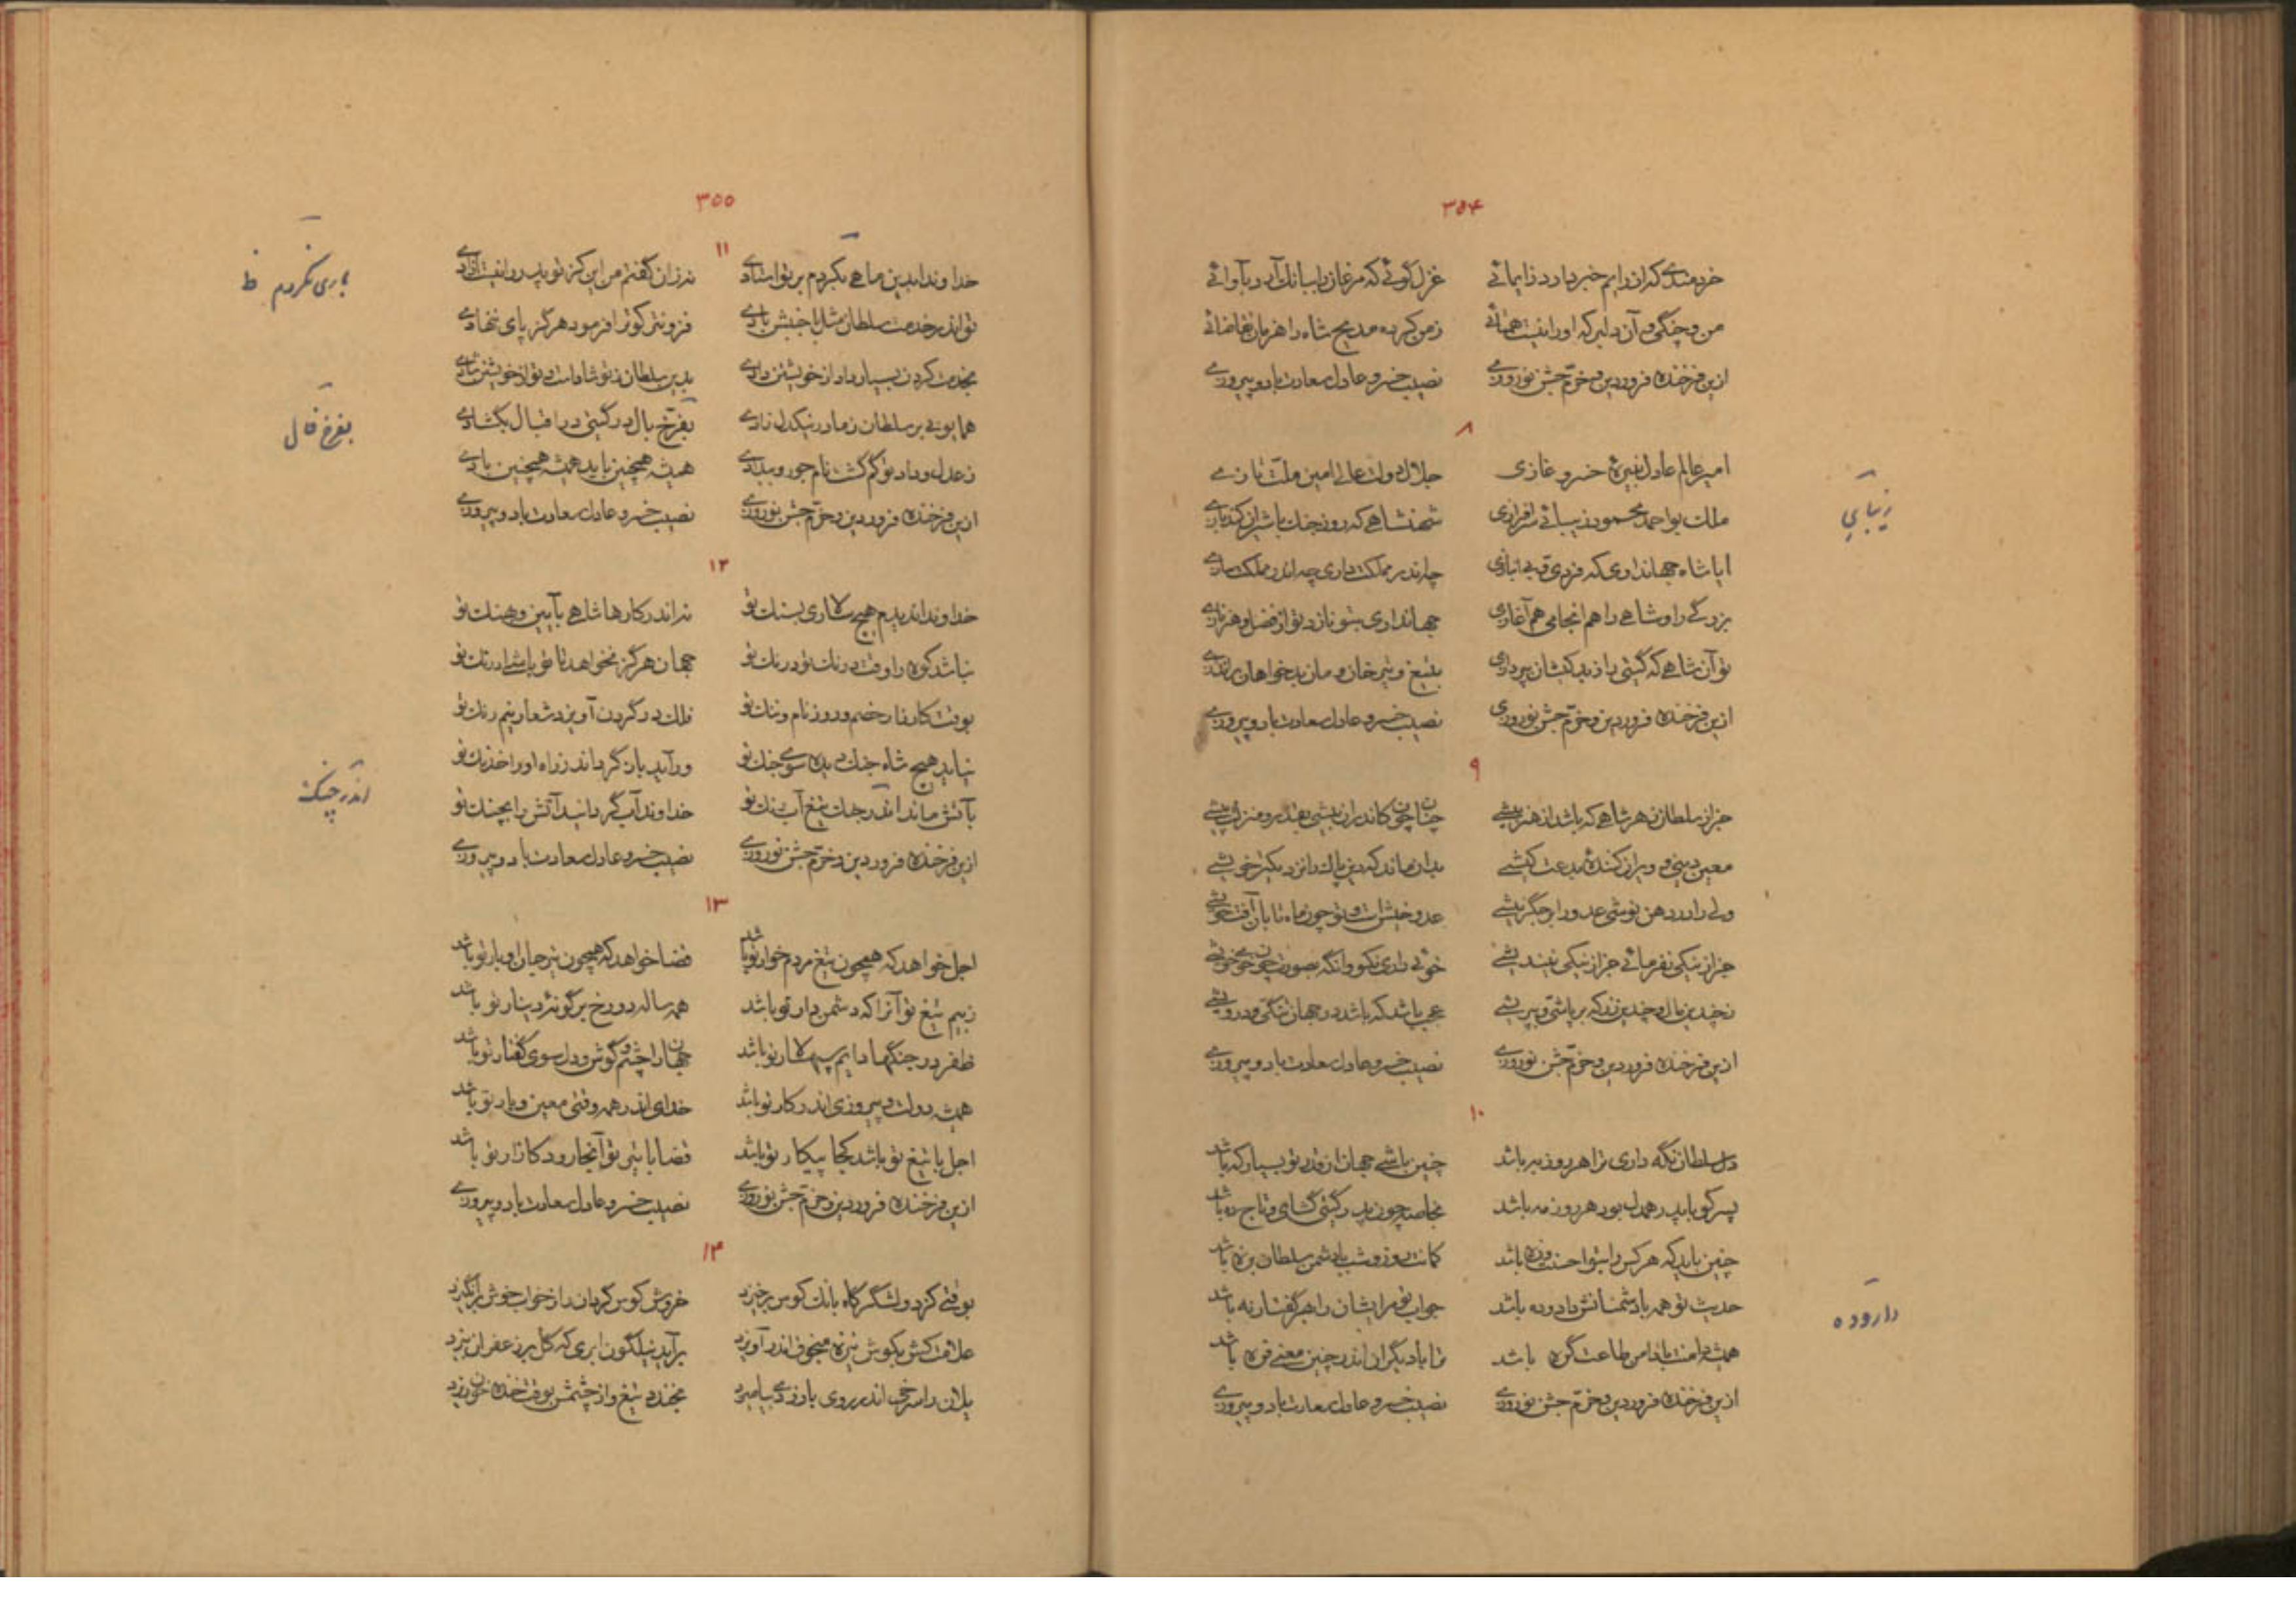 ۳۵۴
خردمندی که از رایم خبر دارد ز ایمائی غزل گوئی که مرغان را ببانگ آرد بآوائی
من و چنگی و آن دلبر که او را نیست همتائی ز من کرده مدیح شاه را هزمان تقاضائی
ازین فرخنده فروردین و خرّم جشن نوروزی نصیب خسرو عادل سعادت باد و پیروزی
۸
امیر عالم عادل نبیرهٔ خسرو غازی جلال دولت عالی امین ملّت تازی
ملک بو احمد محمود زیبائی سرافرازی شهنشاهی که روز جنگ با شیران کند بازی
زیبایی
ایا شاه جهانداری که فردی و بی انبازی چه اندر مملکت داری چه اندر مملکت سازی
بزرگی را و شاهی را هم انجامی هم آغازی جهانداری بتو نازد تو از فضل و هنر نازی
تو آن شاهی که گیتی را ز بد کیشان بپردازی بتیغ و تیر خان و مان بدخواهان براندازی
ازین فرخنده فروردین و خرّم جشن نوروزی نصیب خسرو عادل سعادت باد و پیروزی
۹
جز از سلطان ز هر شاهی که باشد از هنر بیشی چنان چون کاندران بیشی بقدر و منزلت پیشی
معین دینی و ویران کنندهٔ بدعت کیشی بدان ماند که دین پاک را نزدیکتر خویشی
جز از نیکی نفرمائی جز از نیکی نیندیشی
عجب باشد که باشد در جهان تنگی و درویشی
ازین فرخنده فروردین و خرّم جشن نوروزی نصیب خسرو عادل سعادت باد و پیروزی
۱۰
دل سلطان نگه داری ترا هر روز به باشد چنین باشی جهان از قدر تو بسیار که باشد
پسر کو با پدر همدل بود هر روز مه باشد بخاصه چون پدر گیتی گشای و تاج ده باشد
چنین باید که هر کس را بتو احسنت و زه باشد کمانت روز و شب با دشمن سلطان بزه باشد
حدیث تو همه با دشمنانش دار و ده باشد جواب تو مرایشان را بهر گفتار نه باشد
دار و ده
همیشه دامنت با دامن طاعت گره باشد ترا با دیگران اندر چنین معنی فره باشد
ازین فرخنده فروردین و خرّم جشن نوروزی نصیب خسرو عادل سعادت باد و پیروزی
۳۵۵
۱۱
خداوندا بدین ماهی نکردم بر تو استادی نه زان گفتم من این کز تو پدر را نیست آزادی
باری نکردم ظ
تو اندر خدمت سلطان مثل با جنبش بادی فزونتر کو ترا فرمود هرگز پای ننهادی
بخدمت کردن بسیار داد از خویشتن دادی بدین سلطان ز تو شادست و تو از خویشتن شادی
همایونی بر سلطان ز مادر نیکدل زادی بفرّخ بال در گیتی در اقبال بگشادی
بفرخ فال
ز عدل و داد تو گم گشت نام جور و بیدادی همیشه همچنین باید همیشه همچنین بادی
ازین فرخنده فروردین و خرّم جشن نوروزی نصیب خسرو عادل سعادت باد و پیروزی
۱۲
خداوندا ندیدم هیچ سالاری بسنگ تو نه اندر کارها شاهی بآیین و هنگ تو
نباشد کوه را وقت درنگ تو درنگ تو جهان هرگز نخواهد تا تو باشی ادرنگ تو
بوقت کارزار خصم و روز نام و ننگ تو فلک در گردن آویزد شعار نیم رنگ تو
نیاید هیچ شاه جنگ دیده سوی جنگ تو ور آید باز گرداند ز راه او را خدنگ تو
بآتش ماند اندر جنگ تیغ آب رنگ تو خداوند آب گردانید آتش را بچنگ تو
اندر چنگ
ازین فرخنده فروردین و خرّم جشن نوروزی نصیب خسرو عادل سعادت باد و پیروزی
۱۳
اجل خواهد که همچون تیغ مردم خوار تو باشد قضا خواهد که همچون تیر جان اوبار تو باشد
ز بیم تیغ تو آنرا که دشمن دار تو باشد همه ساله دو رخ بر گونهٔ دینار تو باشد
ظفر در جنگها دایم سپهسالار تو باشد جهان را چشم و گوش و دل سوی گفتار تو باشد
همیشه دولت و پیروزی اندر کار تو باشد خدای اندر همه وقتی معین و یار تو باشد
اجل با تیغ تو باشد کجا پیکار تو باشد قضا با تیر تو آنجا رود کازار تو باشد
ازین فرخنده فروردین و خرّم جشن نوروزی نصیب خسرو عادل سعادت باد و پیروزی
۱۴
بوقتی کز دو لشگرگاه بانگ کوس برخیزد خروش کوس گردان را ز خواب خوش برانگیزد
علامت کش بگوش نیزه منجوق اندر آویزد برآید نیلگون ابری که گل بر زعفران بیزد
یلان را سرخی اندر روی با زردی بیامیزد بخندد تیغ و از چشمش بوقت خنده خون ریزد